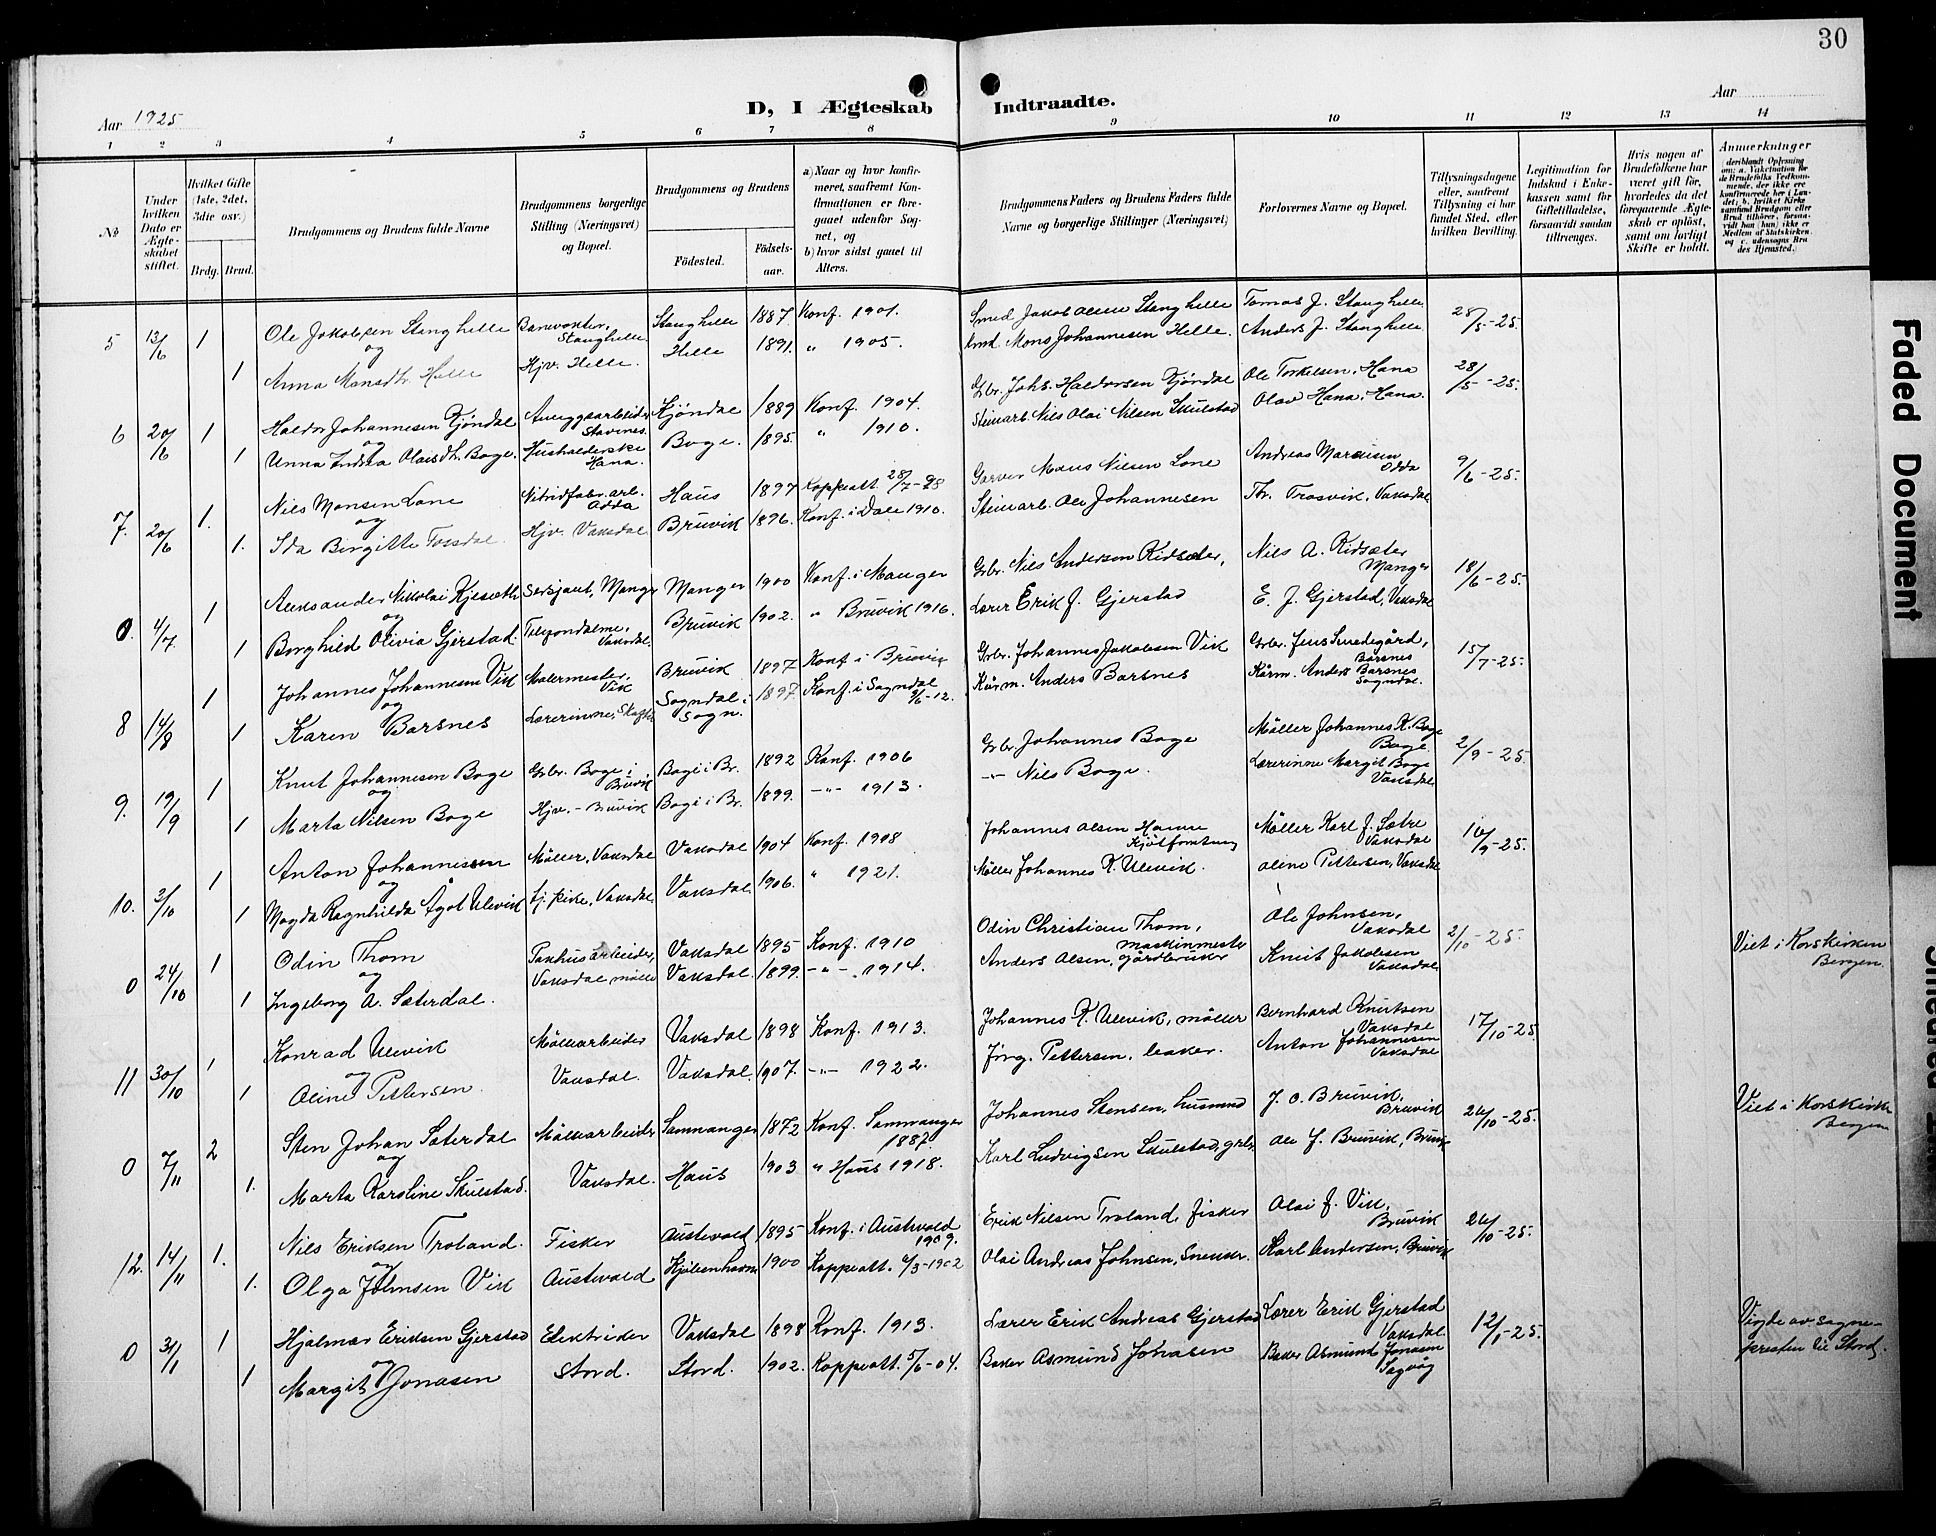 30
D, I Ægteskab Indtraadte.
Aar 1925
Aar
1 2 3 4 5 6 7 8 9 10 11 12 13 14
No
Under hvilken Dato er Ægteskabet stiftet.
Hvilket Gifte (1ste, 2det, 3die osv.)
Brdg. Brud.
Brudgommens og Brudens fulde Navne
Brudgommens borgerlige Stilling (Næringsvei) og Bopæl.
Brudgommens og Brudens
Födested. Födsels-aar.
a) Naar og hvor konfirmeret, saafremt Konfirmationen er foregaaet udenfor Sognet, og
b) hvor sidst gaaet til Alters.
Brudgommens Faders og Brudens Faders fulde Navne og borgerlige Stillinger (Næringsvei)
Forlovernes Navne og Bopæl.
Tillysningsdagene eller, saafremt Tillysning ei har fundet Sted, efter hvilken Bevilling.
Legitimation for Indskud i Enkekassen samt for Giftetilladelse, forsaavidt saadan tiltrænges.
Hvis nogen af Brudefolkene har været gift för, hvorledes da det foregaaende Ægteskab er oplöst, samt om lovligt Skifte er holdt.
Anmerkninger
5 13/6 1 Ole Jakobsen Stanghelle Banevokter, Stanghelle Stanghelle 1887 Konf. 1901. Smed Jakob Olsen Stanghelle Tomas J. Stanghelle 28/5-25.
og
1 Anna Monsdtr. Helle Hjv. Helle. Helle 1891. " 1905. Mons Johannesen Helle. Anders J. Stanghelle
6 20/6 1 Haldor Johannesen Kjøndal Anleggsarbeider Stavenes Kjøndal 1889 Konf. 1904. Grbr. Johs. Haldorsen Kjøndal Ole Torkelsen, Hana 28/5-25.
og
1 Olaisdtr. Boge. Husholderske Hana. Boge. 1895. " 1910. Steinarb. Nils Olai Nilsen Skulstad Olav Hana, Hana.
7. 20/6 1. Nils Monsen Lone Nitridfabr. arb. Odda Haus 1897 Koppeatt. 28/7-98 Garver Mons Nilsen Lone Andreas Odda 9/6-25.
og
1. Ida Birgitte Hjv. Vaksdal Bruvik 1896. Konf. i Dale 1910. Steinarb. Ole Johannesen Th. Trosvik, Vaksdal
0. 4/7 1 Aleksander Nikolai Sersjant, Manger Manger 1900 Konf. i Manger Grbr. Nils Andersen Kidsæter, Nils A. Kidsæter Manger 18/6-25.
og
1 Borghild Olivia Gjerstad. Vaksdal. Bruvik 1902. " Bruvik 1916. Lærer Erik J. Gjerstad E. J. Gjerstad, Vaksdal
8 14/8 1 Johannes Johannesen Vik Malermester, Vik Bruvik 1897 Konf. i Bruvik Grbr. Johannes Jakobsen Vik Grbr. Jens Smedegård, Barsnes 15/7-25.
og
1 Karen Barsnes Lærerinne, Sogndal i Sogn. 1897. Konf. i Sogndal 9/6-12. Kårm. Anders Barsnes Kårm. Anders Barsnes Sogndal.
9. 19/9 1 Knut Johannesen Boge Grbr. Boge i Bruvik Boge i Br. 1892 Konf. 1906 Grbr. Johannes Boge Møller Johannes K. Boge Boge. 2/9-25.
og
1 Marta Nilsen Boge Hjv. - Bruvik Boge i Br. 1899. -"- 1913. -"- Nils Boge. Lærerinne Margit Boge Vaksdal
10. 3/10 1 Anton Johannessen Møller, Vaksdal Vaksdal 1904 Konf. 1908 Johannes Olsen Møller Karl J. Sætre Vaksdal 16/9-25.
og
1 Magda Ragnhilda Ågot Ulevik Vaksdal Vaksdal 1906. " 1921. Møller Johannes K. Ulevik. Oline Pettersen, Vaksdal
0 24/10 1 Odin Thom Pakhusarbeider, Vaksdal 1895 Konf. 1910 Odin Christian Thom, maskinmester Ole Johnsen, Vaksdal 2/10-25. Viet i Korskirken Bergen.
og
1 Ingeborg A. Sæterdal. Vaksdal mølle Vaksdal. 1899. -"- 1914. Anders Olsen, gårdbruker Knut Jakobsen Vaksdal
11 30/10 1 Konrad Ulevik Møllearbeider Vaksdal 1898 Konf. 1913. Johannes K. Ulevik, møller Bernhard Knutsen Vaksdal 17/10-25
og
1 Oline Pettersen. Vaksdal. Vaksdal. 1907. -"- 1922. Jørg. Pettersen. Anton Johannesen Vaksdal
0 7/11 2 Sten Johan Sæterdal Møllearbeider Samnanger 1872 Konf. Samnanger 1887 Johannes Stensen, husmand J. O. Bruvik, Bruvik 24/10-25. Viet i Korskirke Bergen
og
1. Marta Karoline Skulstad. Vaksdal. Haus 1903 " Haus 1918. Karl Ludvigsen Skulstad, grbr. Ole J. Bruvik, Bruvik
12. 14/11 1. Nils Eriksen Troland. Fisker Austevold 1895 Konf. i Austevold 1909. Erik Nilsen Troland, fisker Olai J. Vik, Bruvik 24/10-25.
og
1. Olga Johnsen Vik Austevold Kjøbenhavn 1900 Koppeatt. 4/3-1902 Olai Andreas Johnsen, Snekker. Karl Andersen, Bruvik
0 31/1 1 Hjalmar Eriksen Gjerstad Elektriker Vaksdal 1898 Konf. 1913. Lærer Erik Andreas Gjerstad Lærer Erik Gjerstad Vaksdal 12/1-25. Vigde av sogne-presten til Stord.
og
1 Margit Jonasen Stord. Stord. 1902. Koppeatt. 5/6-04. Baker Asmund Jonasen Baker Asmund Jonasen Sagvåg
Faded Document